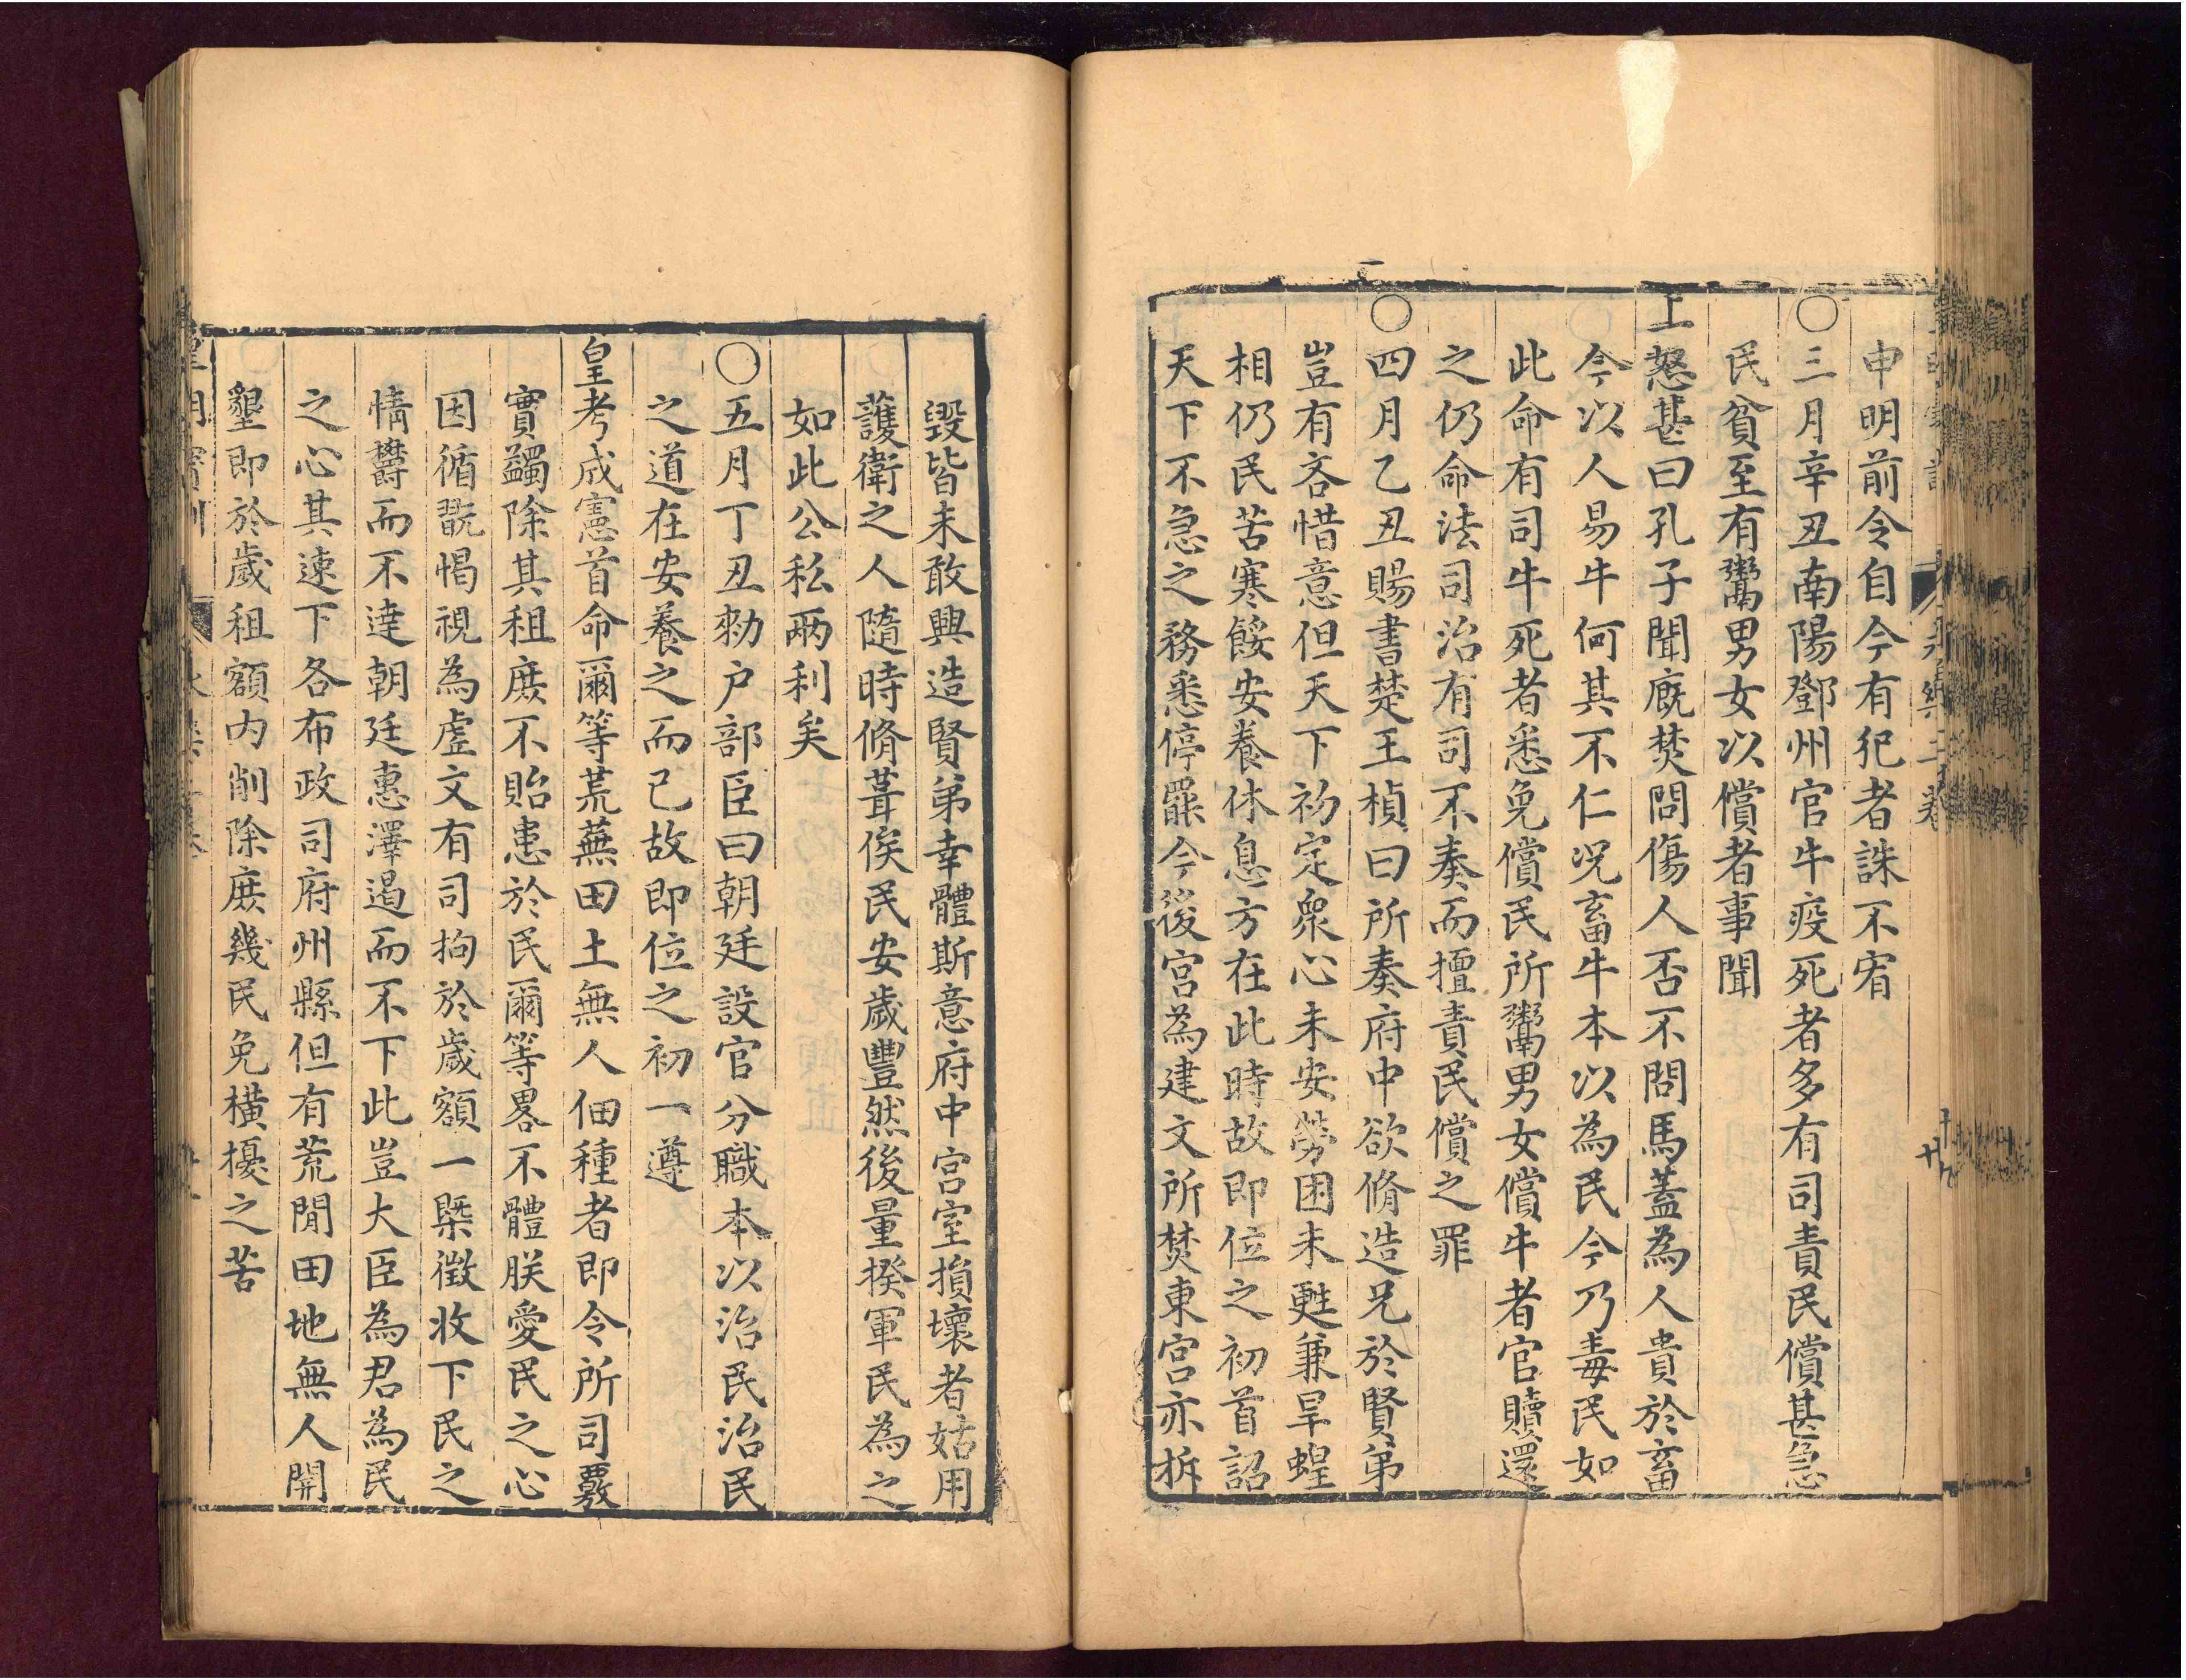 申明前令自今有犯者誅不宥
○三月辛丑南陽鄧州官牛疫死者多有司責民償甚急
民貧至有鬻男女以償者事聞
上怒甚曰孔子聞廐焚問傷人否不問馬蓋為人貴於畜
今以人易牛何其不仁况畜牛本以為民今乃毒民如
此命有司牛死者悉免償民所鬻男女償牛者官贖還
之仍命法司治有司不奏而擅責民償之罪
○四月乙丑賜書楚王楨曰所奏府中欲脩造兄於賢弟
豈有吝惜意但天下初定衆心未安勞困未甦兼旱蝗
相仍民苦寒餒安養休息方在此時故即位之初首詔
天下不急之務悉停罷今後宮為建文所焚東宮亦拆
毀皆未敢興造賢弟幸體斯意府中宮室損壞者姑用
護衛之人隨時脩葺俟民安歲豐然後量撥軍民為之
如此公私兩利矣
○五月丁丑勑户部臣曰朝廷設官分職本以治民治民
之道在安養之而已故即位之初一遵
皇考成憲首命爾等荒蕪田土無人佃種者即令所司覈
實蠲除其租庶不貽患於民爾等畧不體朕愛民之心
因循翫愒視為虛文有司拘於歲額一槩徵收下民之
情欝而不達朝廷惠澤遏而不下此豈大臣為君為民
之心其速下各布政司府州縣但有荒閒田地無人開
墾即於歲租額内削除庶幾民免橫擾之苦